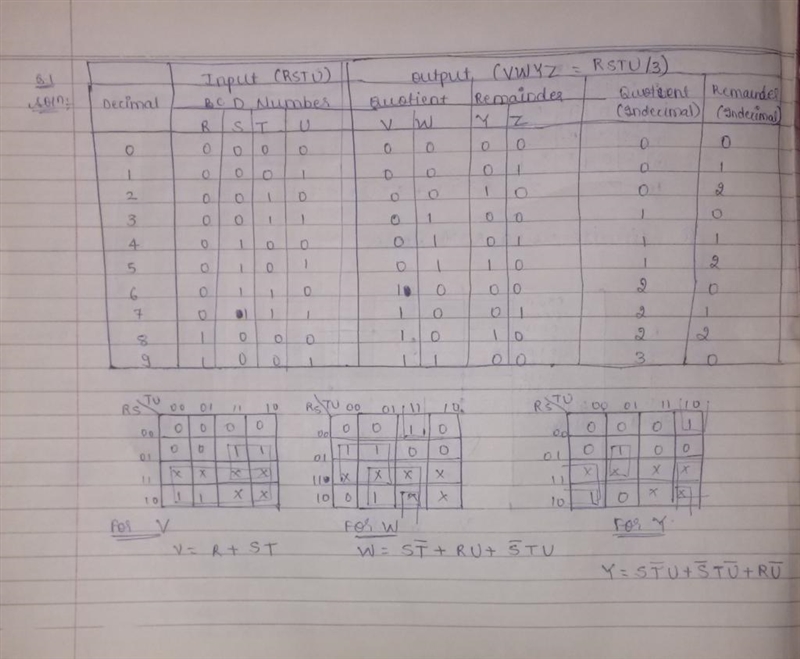 Q.1
Soln:-
Input (RSTU) Output (VWYZ = RSTU/3)
Decimal BCD Number Quotient Remainder Quotient (Indecimal) Remainder (Indecimal)
R S T U V W Y Z
0 0 0 0 0 0 0 0 0 0 0
1 0 0 0 1 0 0 0 1 0 1
2 0 0 1 0 0 0 1 0 0 2
3 0 0 1 1 0 1 0 0 1 0
4 0 1 0 0 0 1 0 1 1 1
5 0 1 0 1 0 1 1 0 1 2
6 0 1 1 0 1 0 0 0 2 0
7 0 1 1 1 1 0 0 1 2 1
8 1 0 0 0 1 0 1 0 2 2
9 1 0 0 1 1 1 0 0 3 0
RS TU 00 01 11 10
00 0 0 0 0
01 0 0 1 1
11 x x x x
10 1 1 x x
For V
V = R + ST
RS TU 00 01 11 10
00 0 0 1 0
01 1 1 0 0
11 x x x x
10 0 1 x x
For W
W = ST̅ + RU + S̅TU
RS TU 00 01 11 10
00 0 0 0 1
01 0 1 0 0
11 x x x x
10 1 0 x x
For Y
Y = ST̅U + S̅TU̅ + RU̅